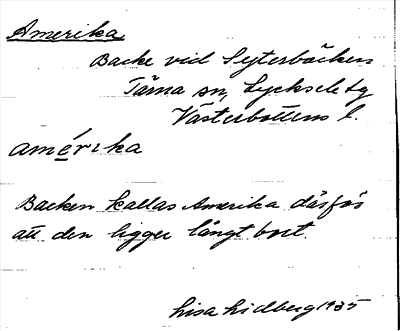 Amerika
Backe vid Sejterbäcken
Tärna sn, Lycksele lg
Västerbottens l.
amérika
Backen kallas Amerika därför
att den ligger långt bort.
Lisa Lidberg 1935